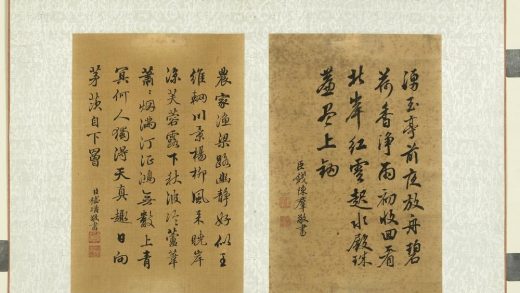 湧玉亭前夜放舟碧
荷香淨雨初收回看
北岸紅雲起水殿珠
簾盡上鉤
臣錢陳羣敬書
農家漁梁路幽静好似王
維輞川景楊柳風来晚岸
涼芙蓉露下秋波冷蘆葦
蕭〻烟滿汀征鴻無數上青
冥何人獨得天真趣日向
茅茨自下罾
臣嵇璜敬書